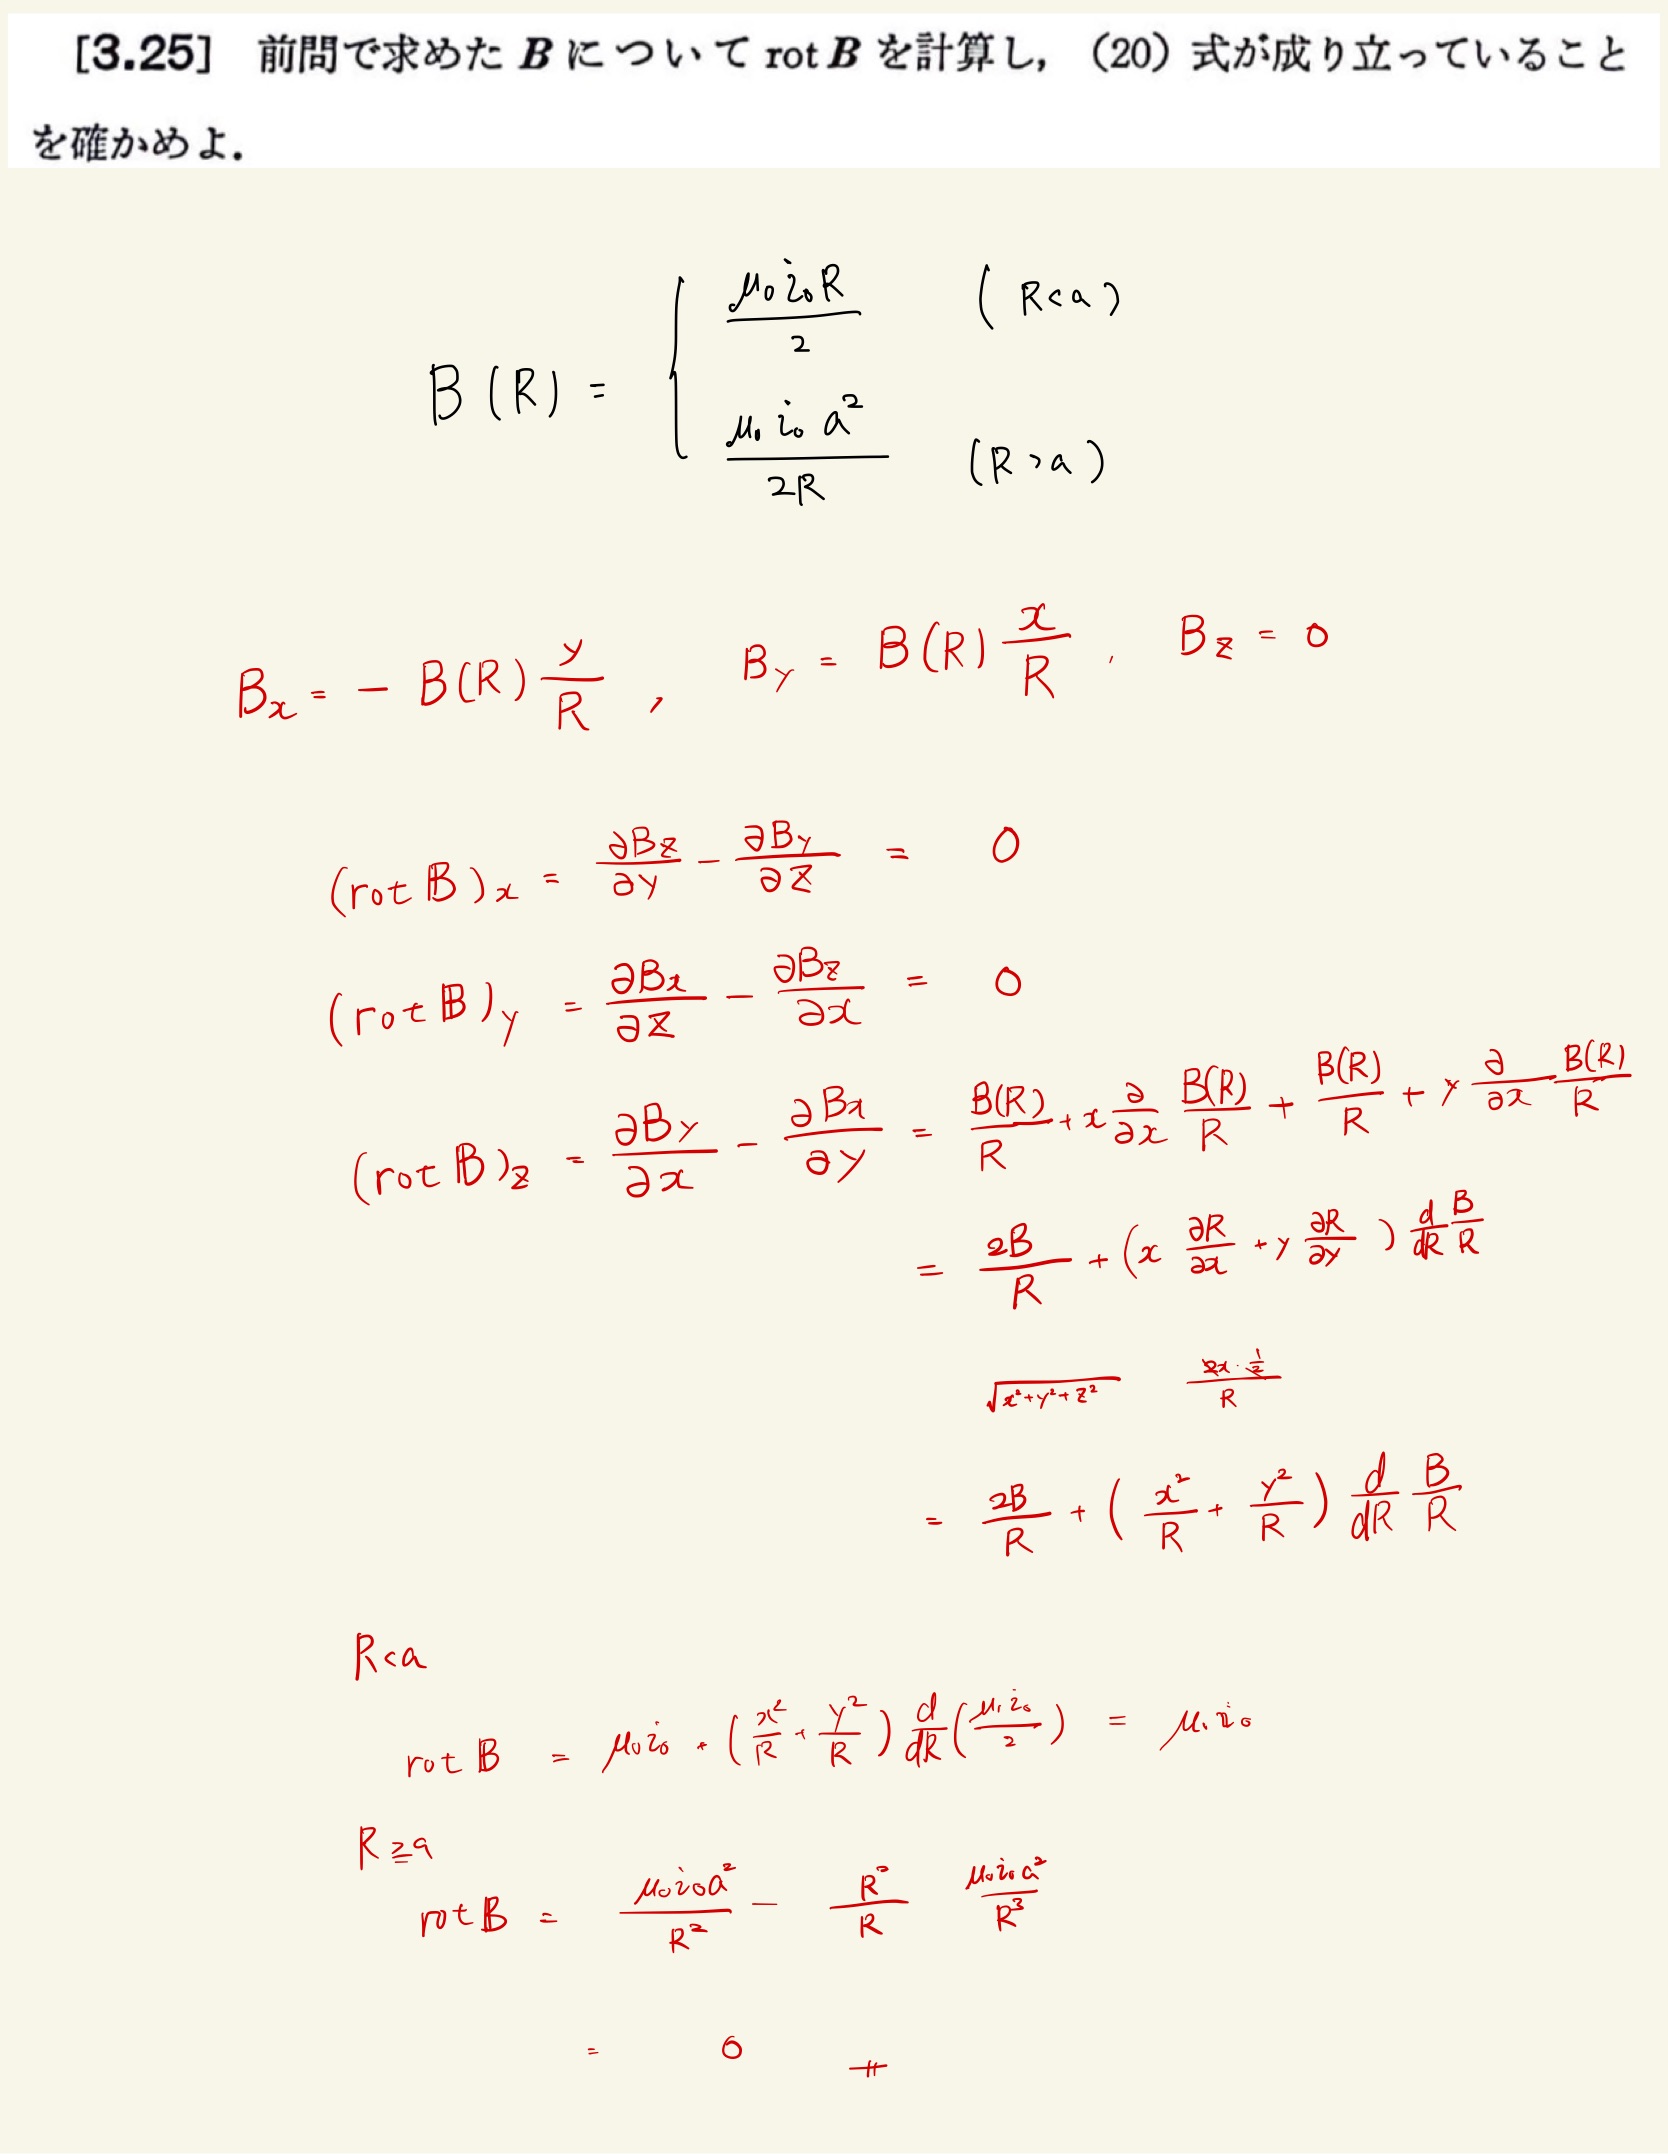 [3.25] 前問で求めた B について rot B を計算し，（20）式が成り立っていること
を確かめよ．
B(R) = { μ₀i₀R/2 (R<a)
μ₀i₀a²/2R (R>a)
Bx = − B(R) y/R , By = B(R) x/R , Bz = 0
(rot B)x = ∂Bz/∂y − ∂By/∂z = 0
(rot B)y = ∂Bx/∂z − ∂Bz/∂x = 0
(rot B)z = ∂By/∂x − ∂Bx/∂y = B(R)/R + x ∂/∂x B(R)/R + B(R)/R + y ∂/∂x B(R)/R
= 2B/R + (x ∂R/∂x + y ∂R/∂y) d/dR B/R
√x²+y²+z² 2x·½/R
= 2B/R + (x²/R + y²/R) d/dR B/R
R<a
rot B = μ₀i₀ + (x²/R + y²/R) d/dR (μ₀i₀/2) = μ₀i₀
R≧a
rot B = μ₀i₀a²/R² − R²/R μ₀i₀a²/R³
= 0